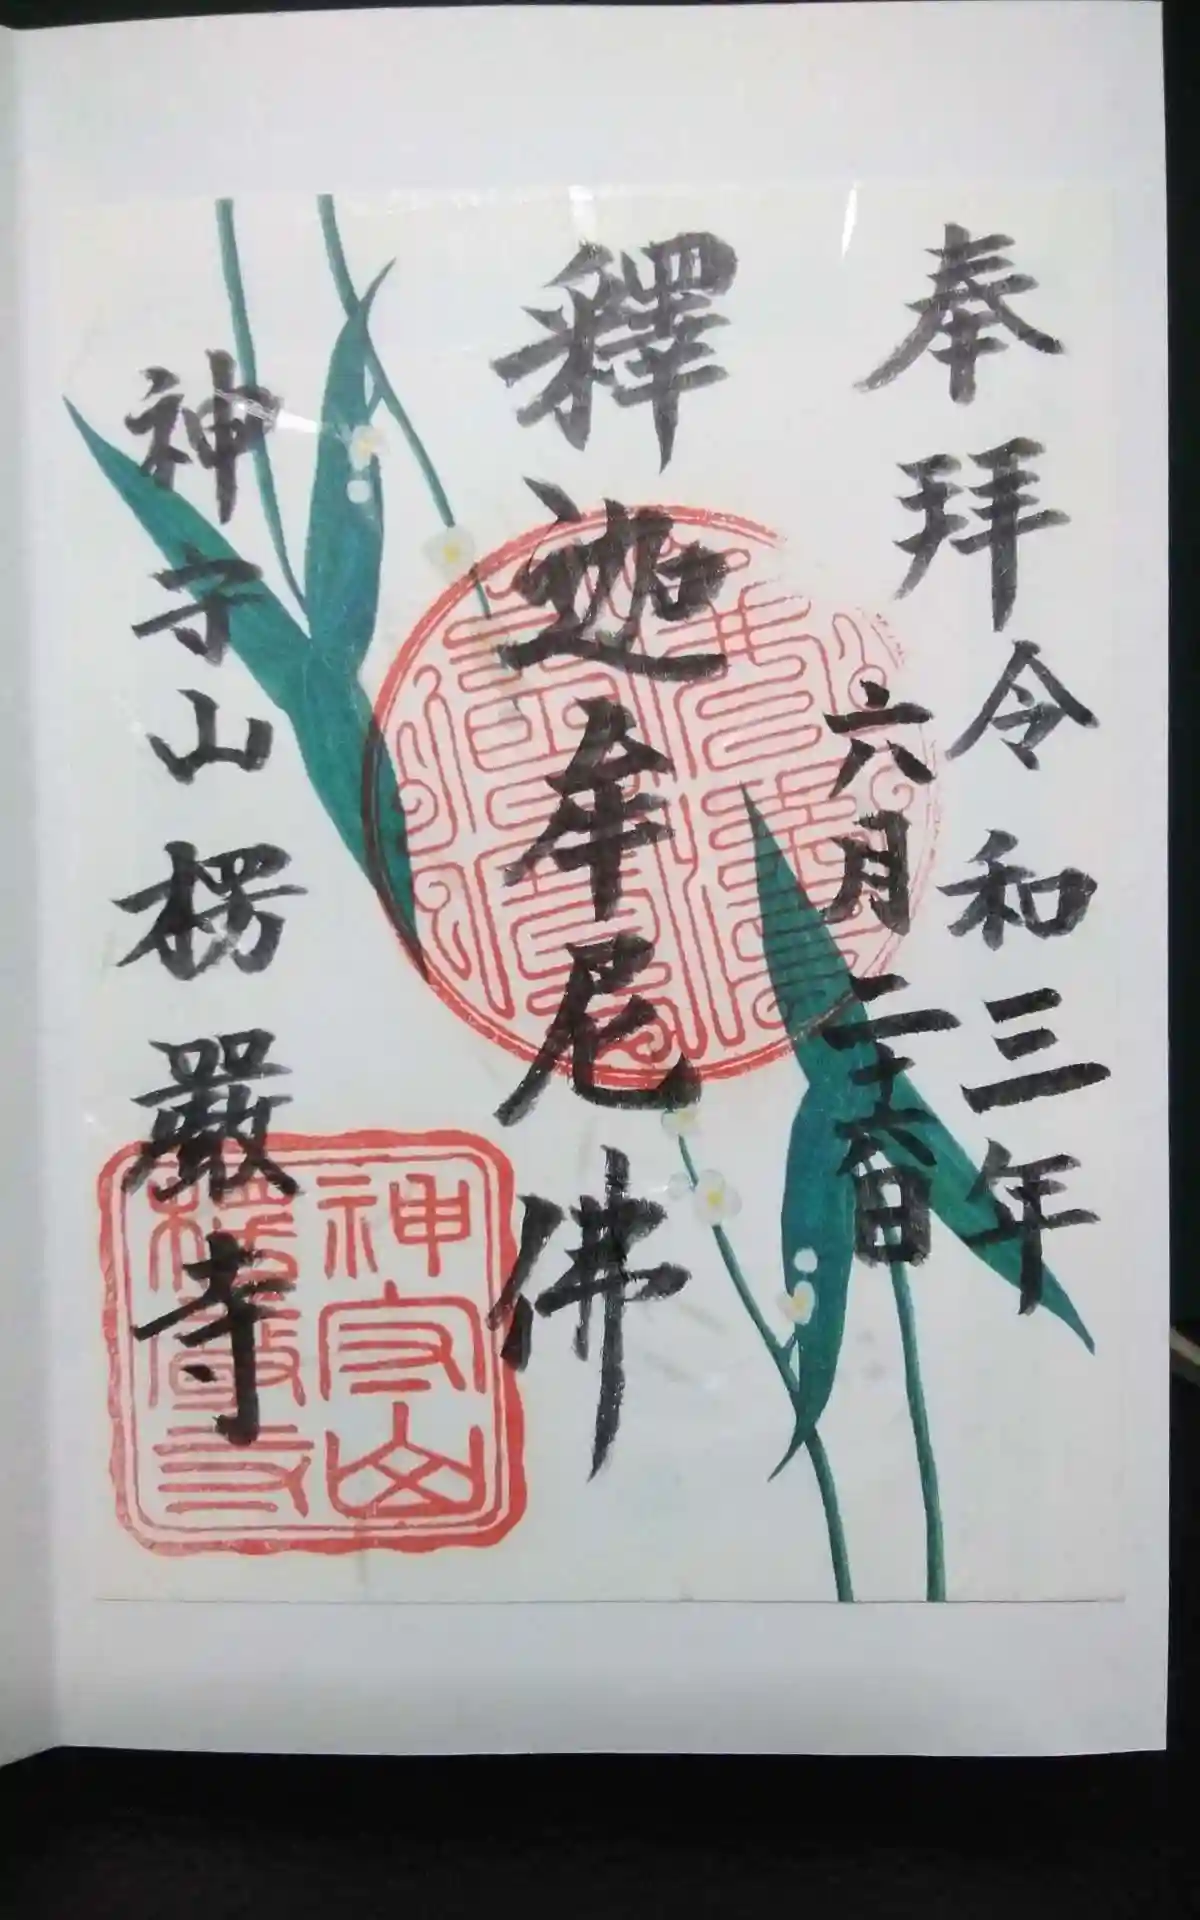 奉拝 令和三年
六月二十六日
釋迦牟尼佛
神守山楞嚴寺
神守山
楞嚴寺